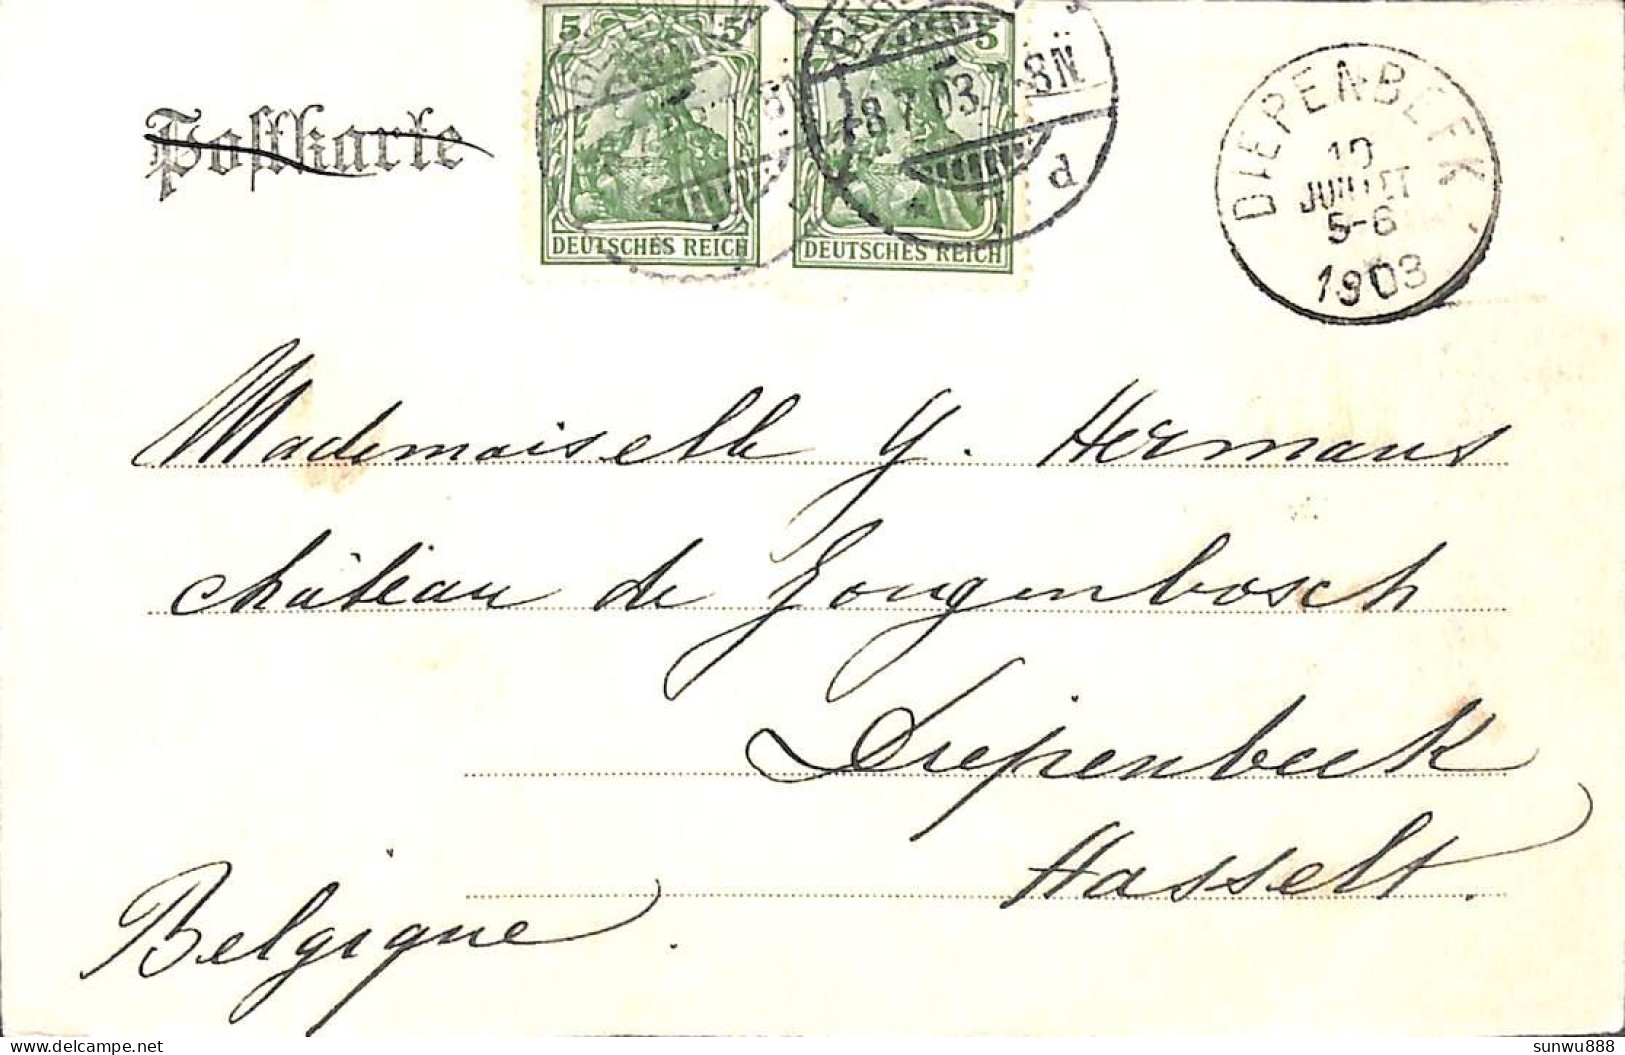 Postkarte
5 5 5
DEUTSCHES REICH DEUTSCHES REICH
8.7.03.7-8N
d
DIEPENBEEK
10
JUILLET
5-6
1903
Mademoiselle G. Hermans
château de Zongenbosch
Diepenbeek
Hasselt.
Belgique.
delcampe.net
sunwu888